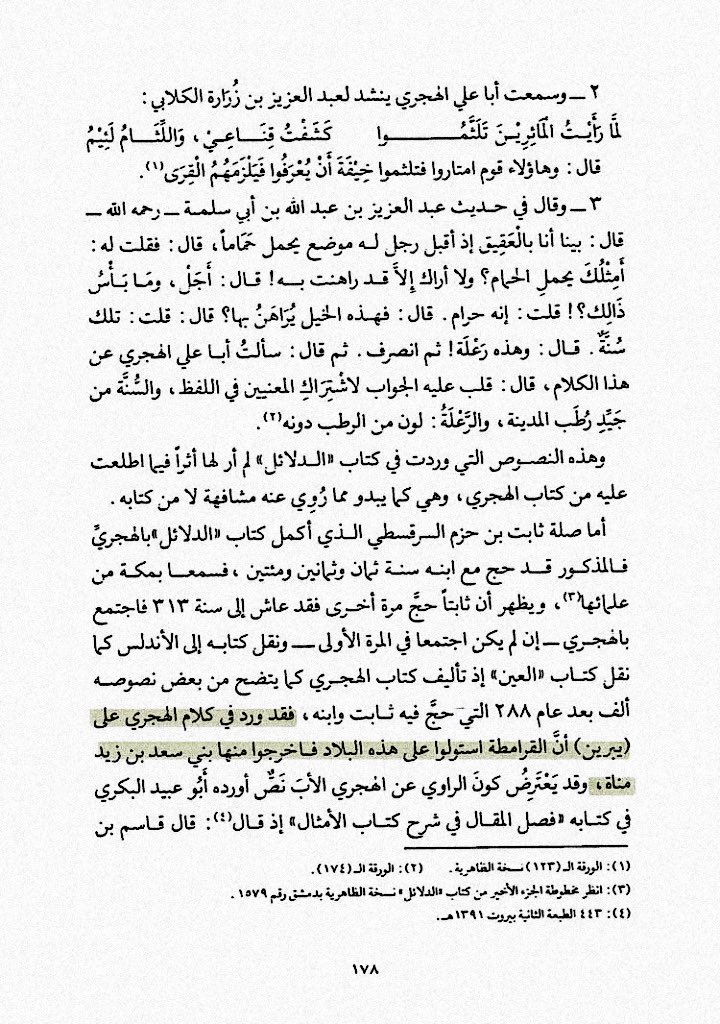 ٢ ــ وسمعت أبا علي الهجري ينشد لعبد العزيز بن زُرَارة الكلابي :
لمَّا رَأَيْتُ الْمَاثِرِيْنَ تَلَثَّمُـــــوا كَشَفْتُ قِنَـاعِـيْ، وَاللِّثَــامُ لَئِيْمُ
قال : وهاؤلاء قوم امتاروا فتلثموا خِيْفَةَ أَنْ يُعْرَفُوا فَيَلْزَمَهُمُ الْقِرَى(١).
٣ ــ وقال في حديث عبد العزيز بن عبد الله بن أبي سلمة ــ رحمه الله ــ
قال : بينا أنا بالْعَقِيق إذ أقبل رجل له موضع يحمل حَمَاماً، قال : فقلت له :
أَمِثْلُكَ يحمل الحمام؟ ولا أراك إلاَّ قد راهنت به! قال : أَجَلْ، ومَا بَأْسُ
ذَالِكَ؟! قلت : إنه حرام. قال : فهذه الخيل يُرَاهَنُ بها؟ قال : قلت : تلك
سُنَّةٌ. قال : وهذه رَعْلَة! ثم انصرف. ثم قال : سألتُ أبا علي الهجري عن
هذا الكلام، قال : قلب عليه الجواب لاشْتِرَاكِ المعنيين في اللفظ، والسُّنَّة من
جَيِّدِ رُطَبِ المدينة، والرَّعْلَةُ : لون من الرطب دونه(٢).
وهذه النصوص التي وردت في كتاب «الدلائل» لم أر لها أثراً فيما اطلعت
عليه من كتاب الهجري، وهي كما يبدو مما رُوِي عنه مشافهة لا من كتابه.
أما صلة ثابت بن حزم السرقسطي الذي أكمل كتاب «الدلائل» بالهجريِّ
فالمذكور قد حج مع ابنه سنة ثمان وثمانين ومئتين، فسمعا بمكة من
علمائها(٣)، ويظهر أن ثابتاً حجَّ مرة أخرى فقد عاش إلى سنة ٣١٣ فاجتمع
بالهجري ــ إن لم يكن اجتمعا في المرة الأولى ــ ونقل كتابه إلى الأندلس كما
نقل كتاب «العين» إذ تأليف كتاب الهجري كما يتضح من بعض نصوصه
ألف بعد عام ٢٨٨ التي حجَّ فيه ثابت وابنه، فقد ورد في كلام الهجري على
(يبرين) أنَّ القرامطة استولوا على هذه البلاد فاخرجوا منها بني سعد بن زيد
مناة، وقد يَعْتَرِضُ كونَ الراوي عن الهجري الأبَ نَصٌّ أورده أَبُو عبيد البكري
في كتابه «فصل المقال في شرح كتاب الأمثال» إذ قال(٤): قال قاسم بن
(١): الورقة الـ(١٢٣) نسخة الظاهرية. (٢): الورقة الـ(١٧٤).
(٣): انظر مخطوطة الجزء الأخير من كتاب «الدلائل» نسخة الظاهرية بدمشق رقم ١٥٧٩.
(٤): ٤٤٣ الطبعة الثانية بيروت ١٣٩١هـ.
١٧٨